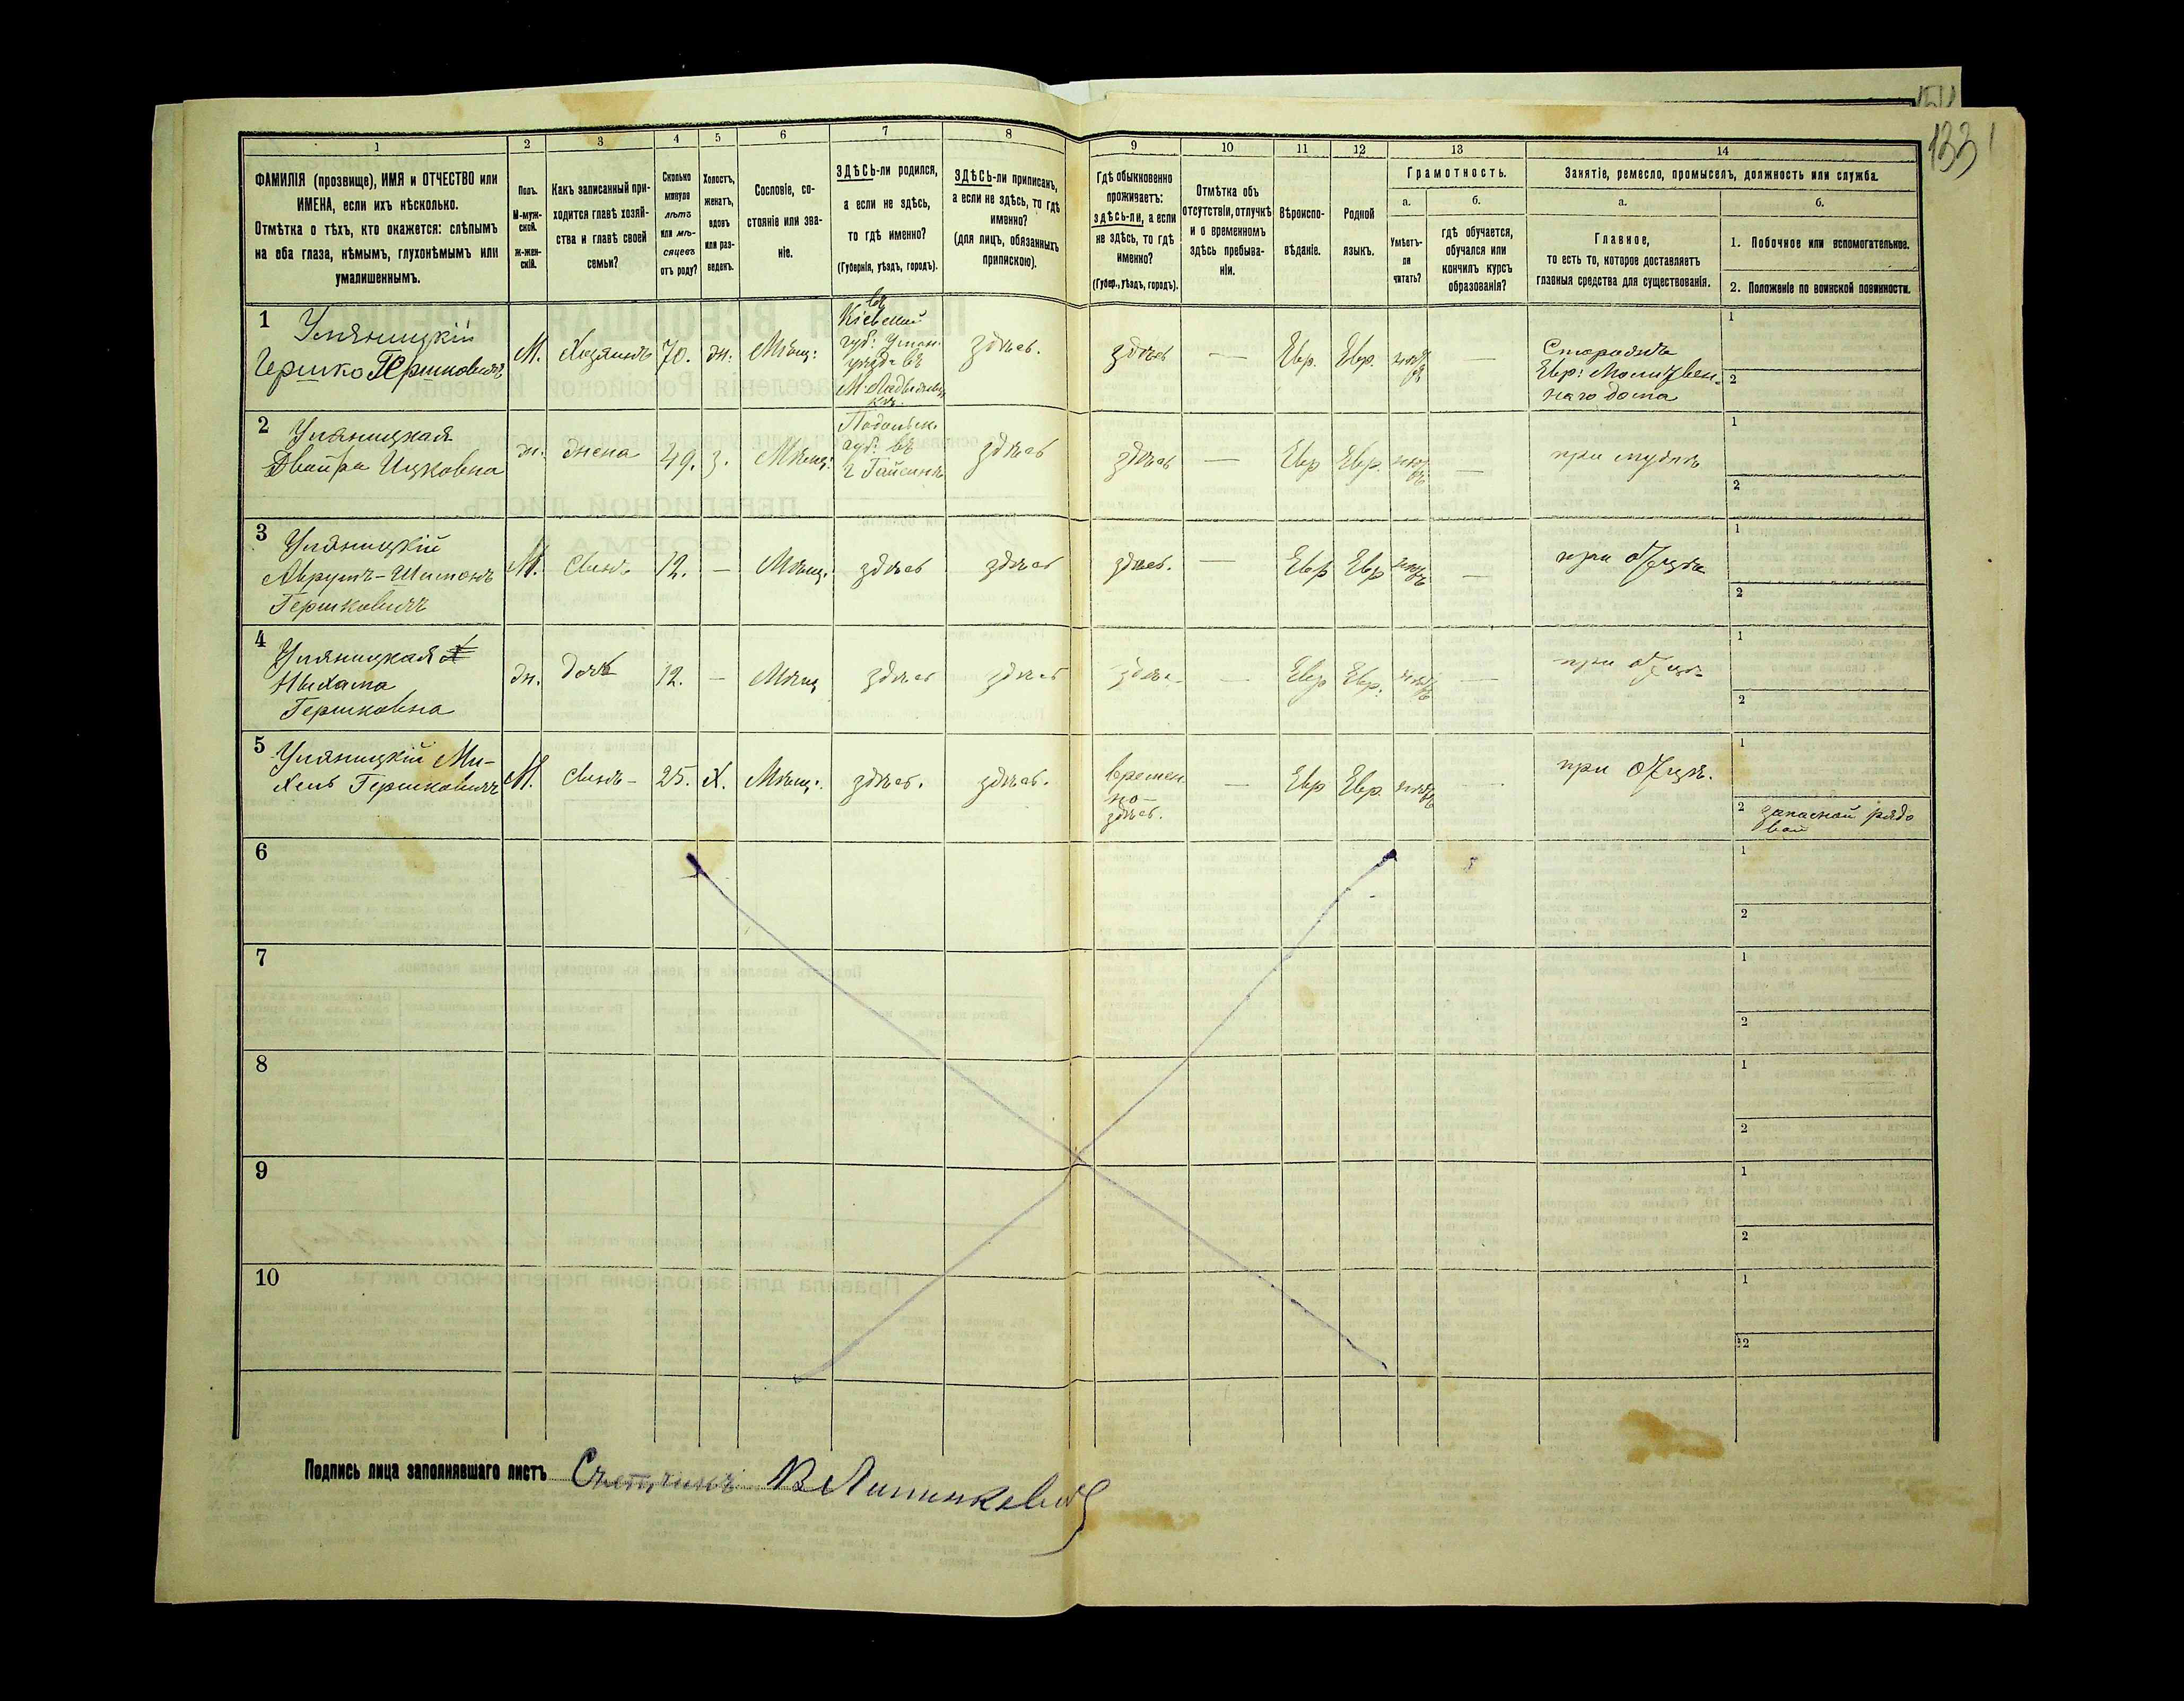 133
1
2
3
4
5
6
7
8
9
10
11
12
13
14
ФАМИЛІЯ (прозвище), ИМЯ и ОТЧЕСТВО или
ИМЕНА, если ихъ нѣсколько.
Отмѣтка о тѣхъ, кто окажется: слѣпымъ
на оба глаза, нѣмымъ, глухонѣмымъ или
умалишеннымъ.
Полъ.
М-муж-
ской.
Ж-жен-
скій.
Какъ записанный при-
ходится главѣ хозяй-
ства и главѣ своей
семьи?
Сколько
минуло
лѣтъ
или мѣ-
сяцевъ
отъ роду?
Холостъ,
женатъ,
вдовъ
или раз-
веденъ.
Сословіе, со-
стояніе или зва-
ніе.
ЗДѢСЬ-ли родился,
а если не здѣсь,
то гдѣ именно?
(Губернія, уѣздъ, городъ).
ЗДѢСЬ-ли приписанъ,
а если не здѣсь, то гдѣ
именно?
(для лицъ, обязанныхъ
припискою).
Гдѣ обыкновенно
проживаетъ:
здѣсь-ли, а если
не здѣсь, то гдѣ
именно?
(Губер., уѣздъ, городъ).
Отмѣтка объ
отсутствіи, отлучкѣ
и о временномъ
здѣсь пребыва-
ніи.
Вѣроиспо-
вѣданіе.
Родной
языкъ.
Грамотность.
а.
б.
Умѣетъ-
ли
читать?
гдѣ обучается,
обучался или
кончилъ курсъ
образованія?
Занятіе, ремесло, промыселъ, должность или служба.
а.
б.
Главное,
то есть то, которое доставляетъ
главныя средства для существованія.
1. Побочное или вспомогательное.
2. Положеніе по воинской повинности.
1 Уляницкій
Гершко Гершковичъ
М.
Хозяинъ
70.
ж.
Мѣщ:
въ
Кіевской
губ: Уман.
уѣздѣ въ
здѣсь.
здѣсь
—
Евр.
Евр.
—
Староста
Евр: Молитвен-
наго дома
1
2
2 Уляницкая
Двойра Ицковна
ж.
жена
49.
з.
Мѣщ:
Подольск.
губ: въ
г Гайсинѣ
здѣсь
здѣсь
—
Евр
Евр.
—
при мужѣ
1
2
3 Уляницкій
Аврумъ-Шимонъ
Гершковичъ
М.
Сынъ
12.
—
Мѣщ.
здѣсь
здѣсь
здѣсь.
—
Евр
Евр
—
при отцѣ
1
2
4 Уляницкая
Нихама
Гершковна
ж.
дочь
12.
—
Мѣщ
здѣсь
здѣсь
—
Евр
Евр.
—
при отцѣ
1
2
5 Уляницкій Ми-
хель Гершковичъ
М.
Сынъ-
25.
Х.
Мѣщ.
здѣсь.
здѣсь.
времен
но-
здѣсь.
—
Евр
Евр.
при отцѣ.
1
2 запасной рядо
вой
6
1
2
7
1
2
8
1
2
9
1
2
10
1
2
Подпись лица заполнявшаго листъ Счетчикъ